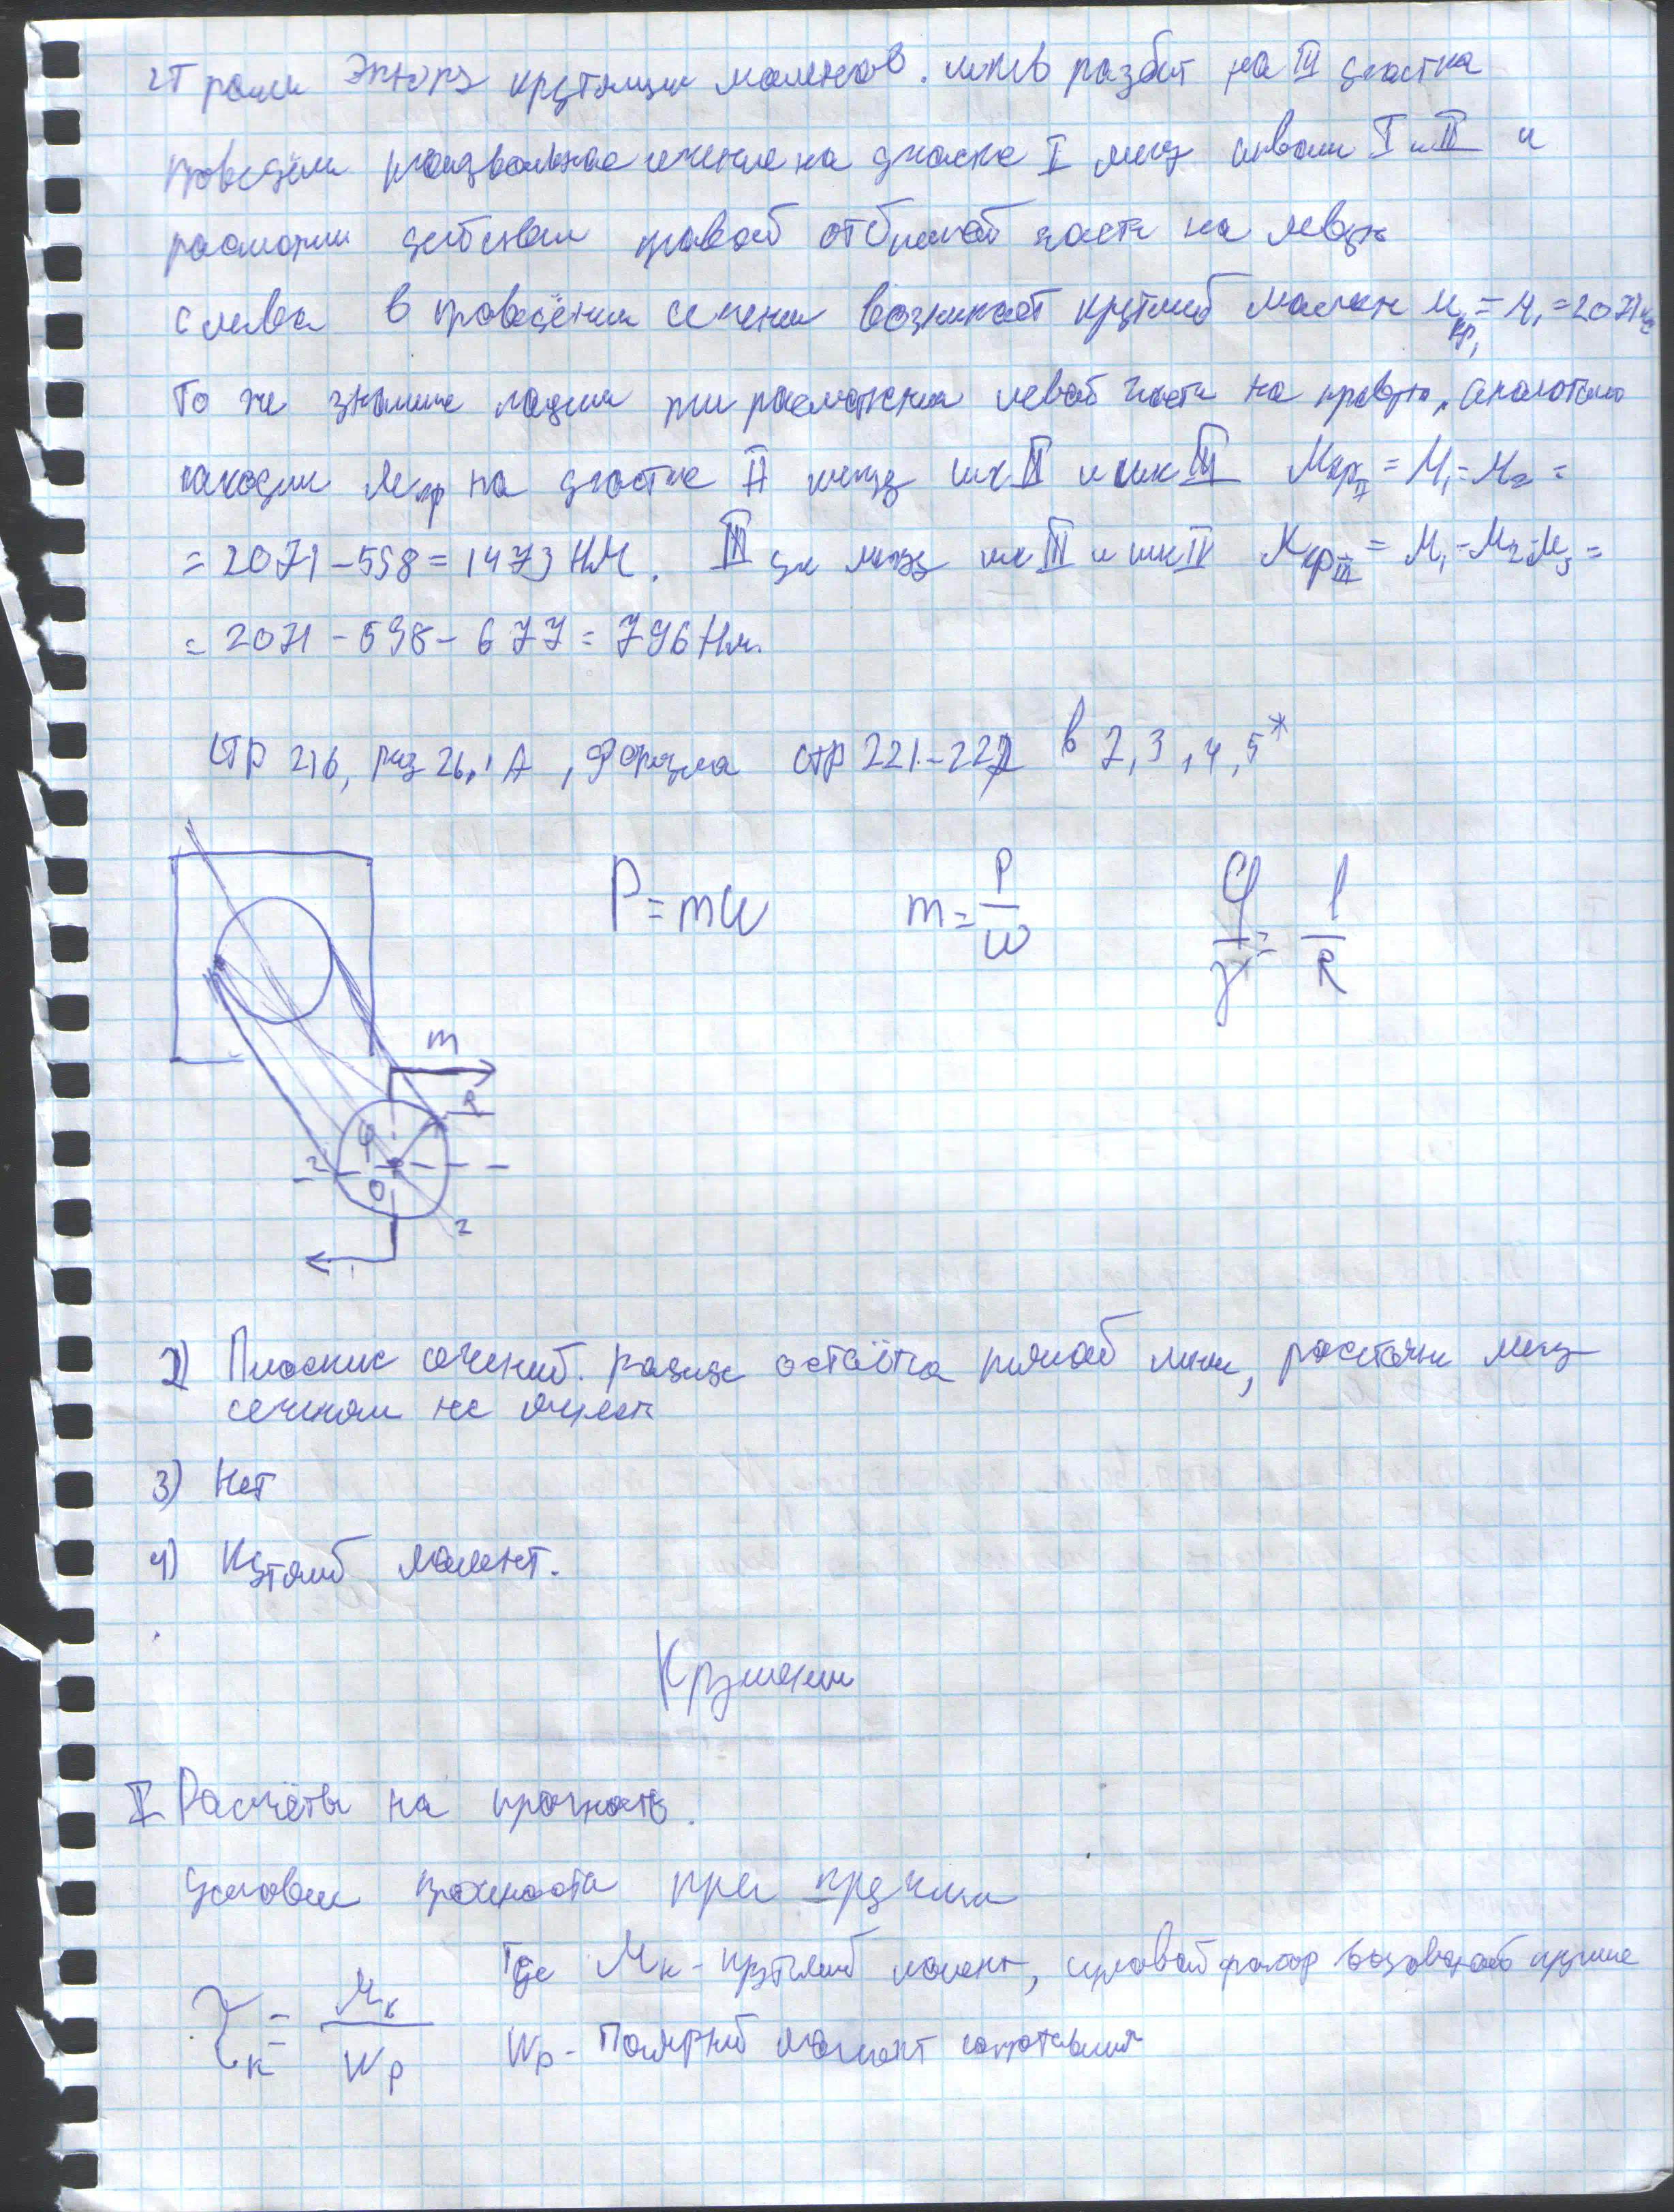 строим Эпюру крутящих моментов. шкив разбит на III участка
проведём произвольное сечение на участке I межд шквами I и II и
расмотрим действии правой отбр части на левую
слева в проведёном сечении возникает крутящий момент Mкр₁ = M₁ = 2071 нм
То же значение при расмотрении левой части на правую. аналогично
находим Mкр на участке II между шк II и шк III Mкр II = M₁ - M₂ =
= 2071 - 598 = 1473 НМ. III уч между шк III и шк IV Mкр III = M₁ - M₂ - M₃ =
= 2071 - 598 - 677 = 796 Нм.
Стр 216, риз 26.1 А, Формула стр 221-222 в 2, 3, 4, 5*
P = mω
m = P/ω
φ/γ = l/R
m
R
φ
O
2
2) Плоские сечений. радиус остаётся прямой линии, растояние межд
сечением не
3) Нет
4) Кутящий момент.
Кручении
I Расчёты на прочность.
Условии прочности при кручении
τк = Mк/Wp
Где Mк - крутящий момент, силовой фактор вызовающий кручение
Wp - Полярный момент сопротивления